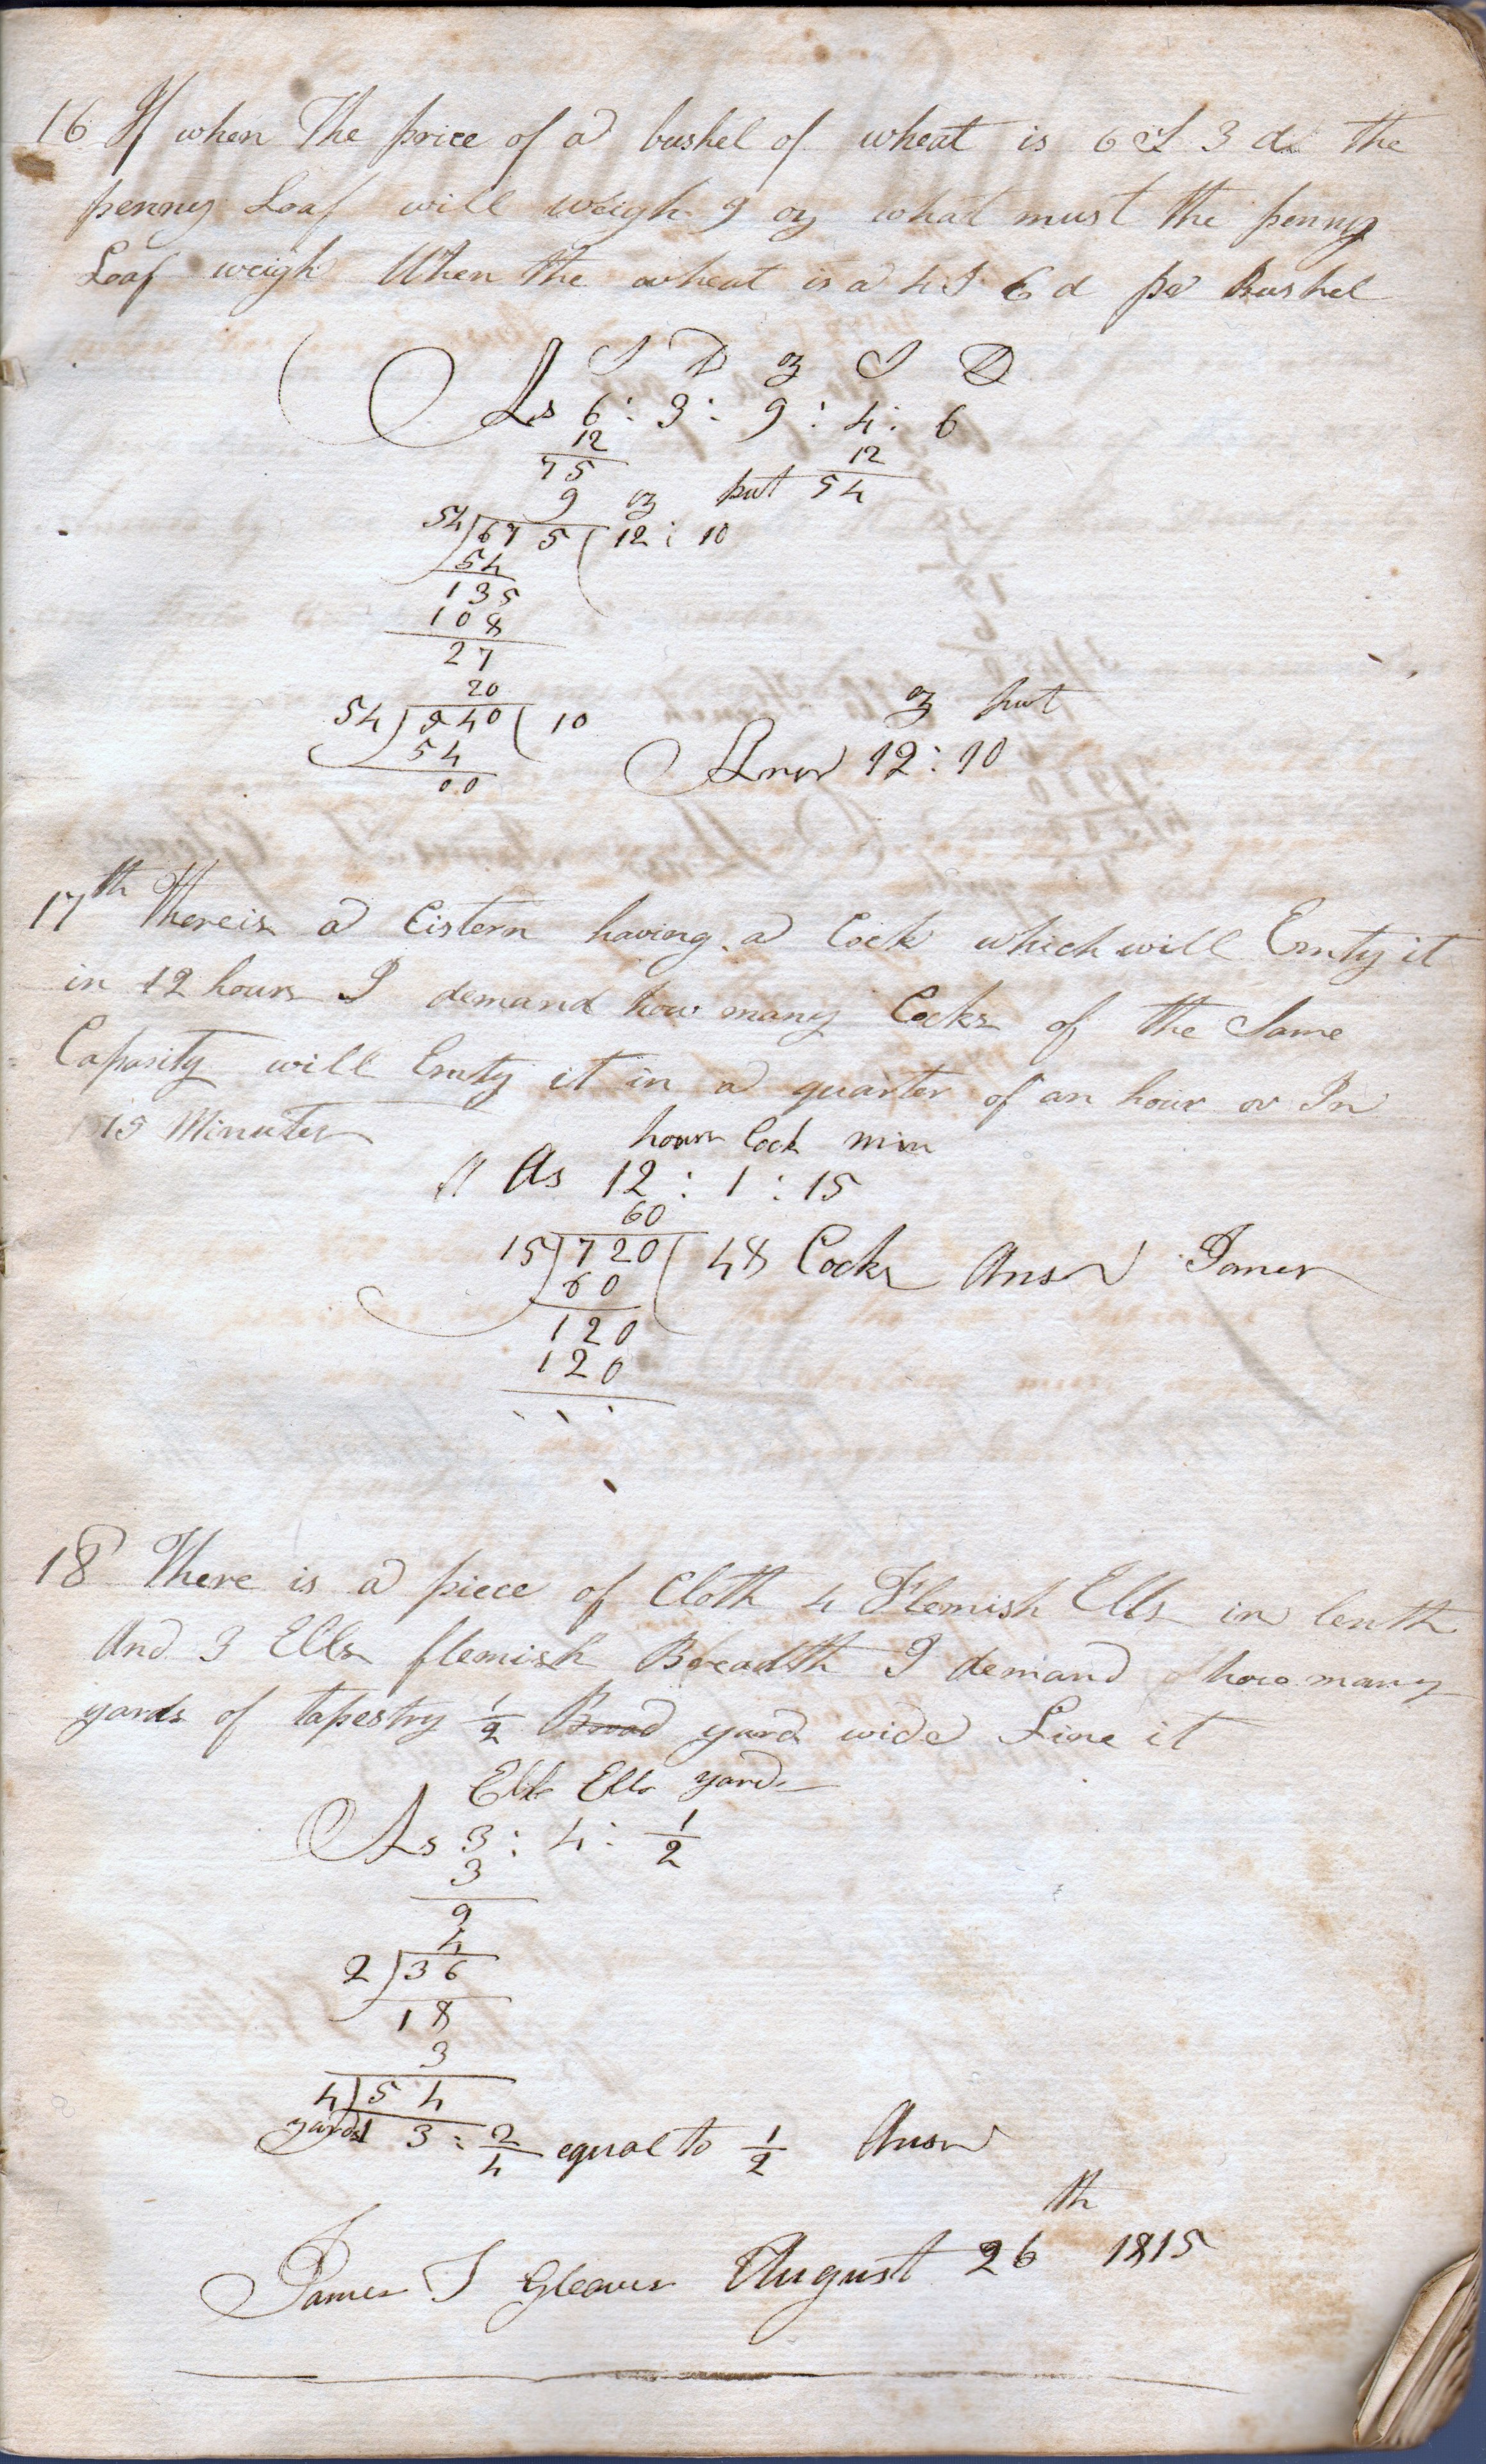 16 If when The price of a bushel of wheat is 6 S 3 d the
penny Loaf will weigh 9 oz what must the penny
Loaf weigh When the wheat is a 4 S 6 d pe Bushel
S D oz S D
As 6 : 3 : 9 : 4 : 6
12 12
75 54
9 oz put
54) 675 ( 12 : 10
54
135
108
27
20
54) 540 ( 10
54
00
oz put
Answ 12 : 10
17th There is a Cistern having a Cock which will Emty it
in 12 hours I demand how many Cocks of the Same
Capasity will Emty it in a quarter of an hour or In
15 Minutes
hours Cock min
As 12 : 1 : 15
60
15) 720 ( 48 Cocks Answ James
60
120
120
18 There is a piece of Cloth 4 Flemish Ells in lenth
And 3 Ells flemish Breadth I demand how many
yards of tapestry 1/2 Broad yard wide Line it
Ells Ells yards
As 3 : 4 : 1/2
3
9
4
2) 36
18
3
4) 54
yards 13 : 2/4 equal to 1/2 Answ
James T Gleaves August 26th 1815